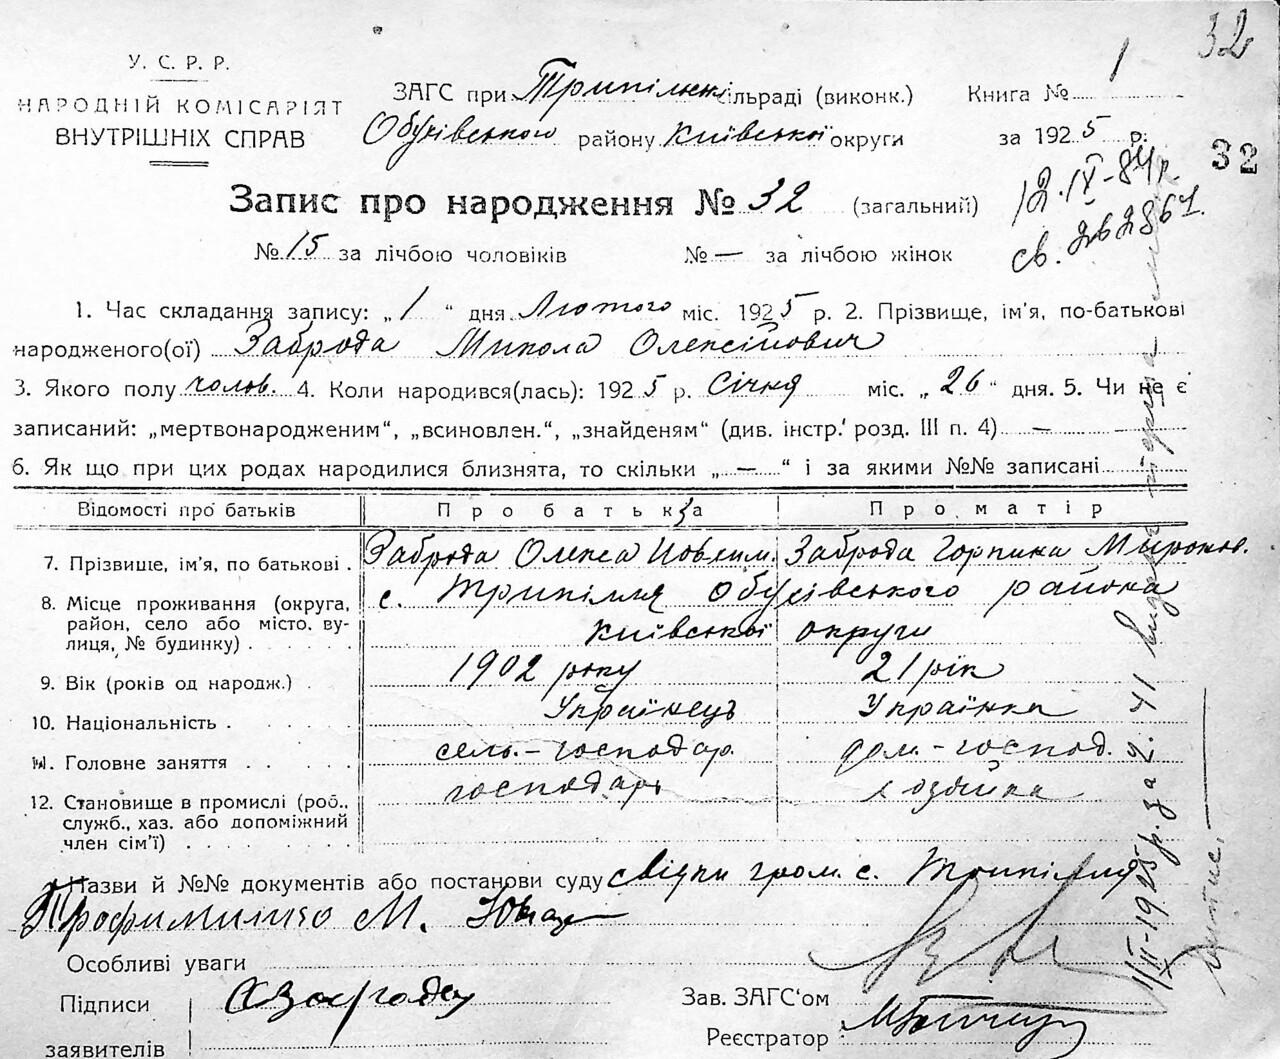 32
У. С. Р. Р.
НАРОДНІЙ КОМІСАРІЯТ
ВНУТРІШНІХ СПРАВ
ЗАГС при Трипільскі сільраді (виконк.) Книга № 1
Обухівського району Київської округи за 1925 р.
32
Запис про народження № 32 (загальний)
12.IX-84 р.
№ 15 за лічбою чоловіків № — за лічбою жінок
св.
1. Час складання запису: „ 1 “ дня Лютого міс. 1925 р. 2. Прізвище, ім'я, по-батькові
народженого(ої) Заброда Микола Олексійович
3. Якого полу чолов. 4. Коли народився(лась): 1925 р. Січня міс. „ 26 “ дня. 5. Чи не є
записаний: „мертвонародженим“, „всиновлен.“, „знайденям“ (див. інстр. розд. III п. 4) —
6. Як що при цих родах народилися близнята, то скільки „ — “ і за якими №№ записані
Відомості про батьків Про батька Про матір
7. Прізвище, ім'я, по батькові . Заброда Олекса Заброда Горпина Миронов.
8. Місце проживання (округа, район, село або місто, вулиця, № будинку) . с. Трипілля Обухівського района
Київської округи
9. Вік (років од народж.) . 1902 року 21 рік
10. Національність . Українець Українка
11. Головне заняття . сель.-господар. дом.-господ.
12. Становище в промислі (роб., служб., хаз. або допоміжний член сім'ї) . господарь хозяйка
Назви й №№ документів або постанови суду свідки гром. с. Трипілля
М.
Особливі уваги
Підписи
заявителів
Зав. ЗАГС'ом
Реєстратор